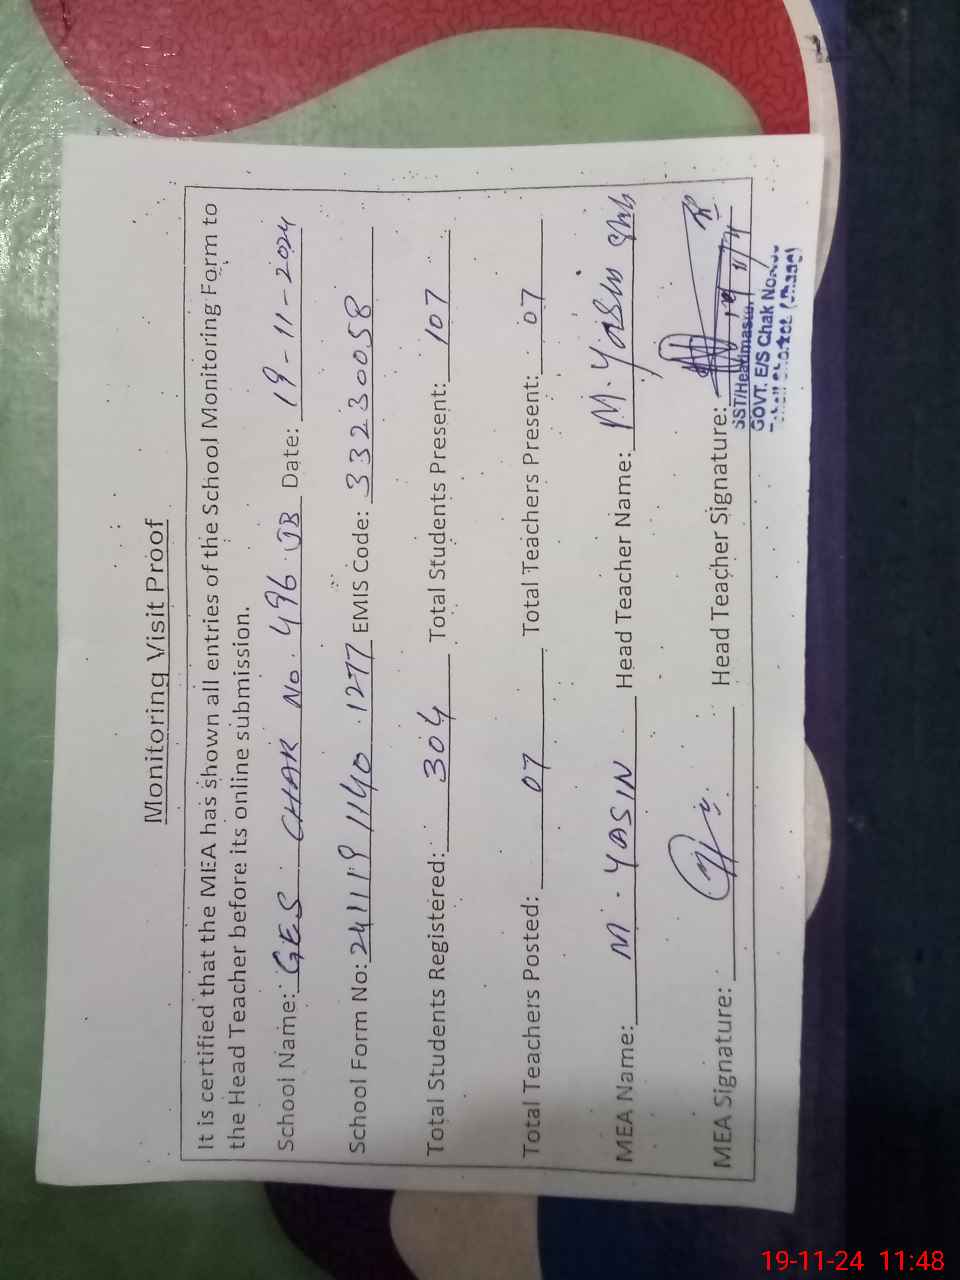 Monitoring Visit Proof
It is certified that the MEA has shown all entries of the School Monitoring Form to
the Head Teacher before its online submission.
School Name: GES CHAK No. 496 JB Date: 19-11-2024
School Form No: 241119 1140 1277 EMIS Code: 33230058
Total Students Registered: 304 Total Students Present: 107
Total Teachers Posted: 07 Total Teachers Present: 07
MEA Name: M. YASIN Head Teacher Name: M. Yasin
MEA Signature: Head Teacher Signature:
SST/Headmaster
GOVT. E/S Chak No.
19-11-24 11:48